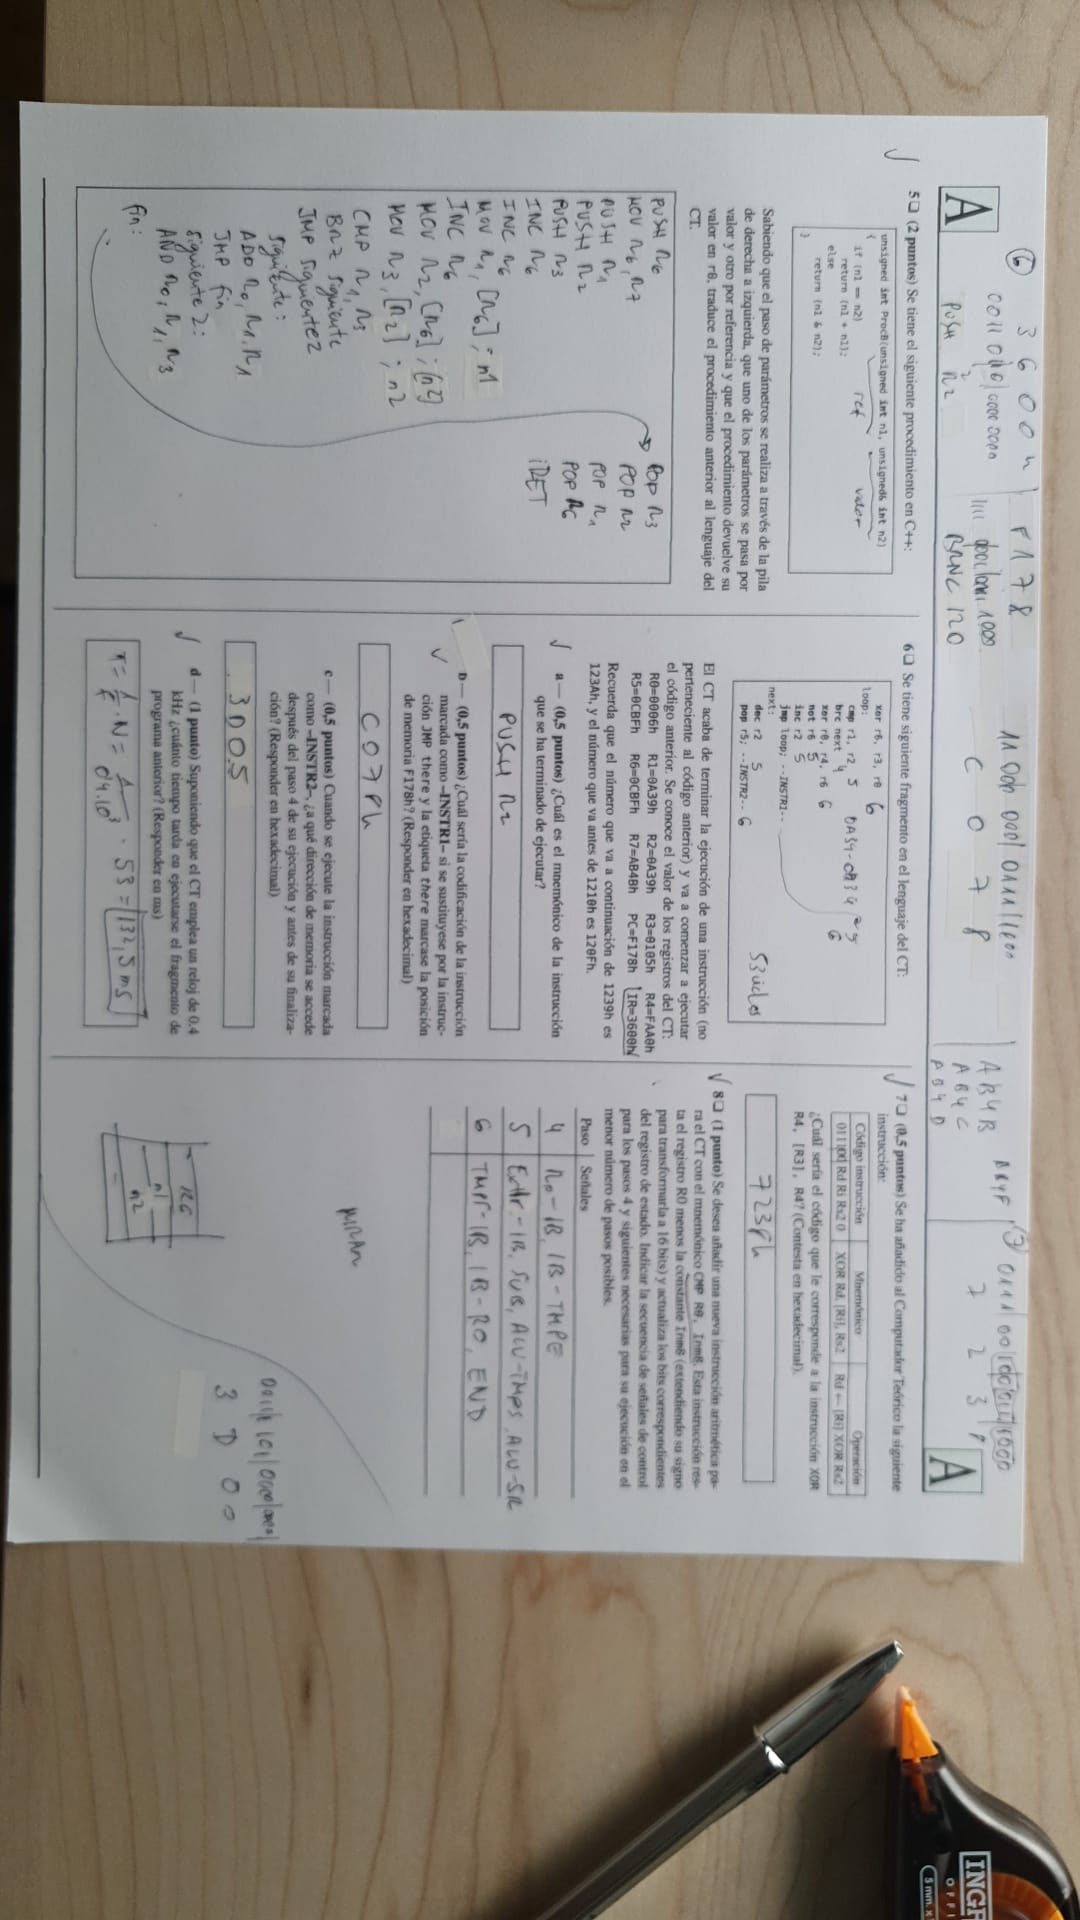 ⑥ 3 6 0 0 h
0011 0110 0000 0000
PUSH r2
F 1 7 8
BRNC 120
C 0 7 8
AB4B
AB4C
AB4D
7 2 3 8
A
A
5❏ (2 puntos) Se tiene el siguiente procedimiento en C++:
unsigned int ProcB(unsigned int n1, unsigned& int n2)
{
if (n1 == n2)
return (n1 + n1);
else
return (n1 & n2);
}
ref
valor
Sabiendo que el paso de parámetros se realiza a través de la pila
de derecha a izquierda, que uno de los parámetros se pasa por
valor y otro por referencia y que el procedimiento devuelve su
valor en r0, traduce el procedimiento anterior al lenguaje del
CT.
PUSH r6
MOV r6, r7
PUSH r1
PUSH r2
PUSH r3
INC r6
INC r6
MOV r1, [r6] ; n1
INC r6
MOV r2, [r6] ; [n2]
MOV r3, [r2] ; n2
CMP r1, r3
BRZ siguiente
JMP siguiente2
siguiente:
ADD r0, r1, r1
JMP fin
siguiente2:
AND r0, r1, r3
fin:
POP r3
POP r2
POP r1
POP r6
iRET
6❏ Se tiene siguiente fragmento en el lenguaje del CT:
xor r6, r3, r0 6
loop:
cmp r1, r2 5
brc next 4
xor r0, r4, r6 6
not r6 5
inc r2 5
jmp loop; --INSTR1--
next:
dec r2 5
pop r5; --INSTR2-- 6
53 ciclos
El CT acaba de terminar la ejecución de una instrucción (no
perteneciente al código anterior) y va a comenzar a ejecutar
el código anterior. Se conoce el valor de los registros del CT:
R0=0006h R1=0A39h R2=0A39h R3=0105h R4=FAA0h
R5=0CBFh R6=0CBFh R7=AB4Bh PC=F178h IR=3600h
Recuerda que el número que va a continuación de 1239h es
123Ah, y el número que va antes de 1210h es 120Fh.
a — (0,5 puntos) ¿Cuál es el mnemónico de la instrucción
que se ha terminado de ejecutar?
PUSH r2
b — (0,5 puntos) ¿Cuál sería la codificación de la instrucción
marcada como --INSTR1-- si se sustituyese por la instruc-
ción JMP there y la etiqueta there marcase la posición
de memoria F178h? (Responder en hexadecimal)
C078h
c — (0,5 puntos) Cuando se ejecute la instrucción marcada
como --INSTR2--, ¿a qué dirección de memoria se accede
después del paso 4 de su ejecución y antes de su finaliza-
ción? (Responder en hexadecimal)
3D05
d — (1 punto) Suponiendo que el CT emplea un reloj de 0.4
kHz ¿cuánto tiempo tarda en ejecutarse el fragmento de
programa anterior? (Responder en ms)
T = 1/F · N = 1/0,4·10³ · 53 = 132,5 ms
7❏ (0,5 puntos) Se ha añadido al Computador Teórico la siguiente
instrucción:
Código instrucción Mnemónico Operación
01110 Rd Ri Rs2 0 XOR Rd, [Ri], Rs2 Rd ← [Ri] XOR Rs2
¿Cuál sería el código que le corresponde a la instrucción XOR
R4, [R3], R4? (Contesta en hexadecimal).
7238h
8❏ (1 punto) Se desea añadir una nueva instrucción aritmética pa-
ra el CT con el mnemónico CMP R0, Inm8. Esta instrucción res-
ta el registro R0 menos la constante Inm8 (extendiendo su signo
para transformarla a 16 bits) y actualiza los bits correspondientes
del registro de estado. Indicar la secuencia de señales de control
para los pasos 4 y siguientes necesarias para su ejecución en el
menor número de pasos posibles.
Paso Señales
4 R0-IB, IB-TMPE
5 ExtIr-IB, SUB, ALU-TMPS, ALU-SR
6 TMPS-IB, IB-R0, END
MIRAR
R6
n1
n2
3 D 0 0
INGR
OFFI
5 mm. x